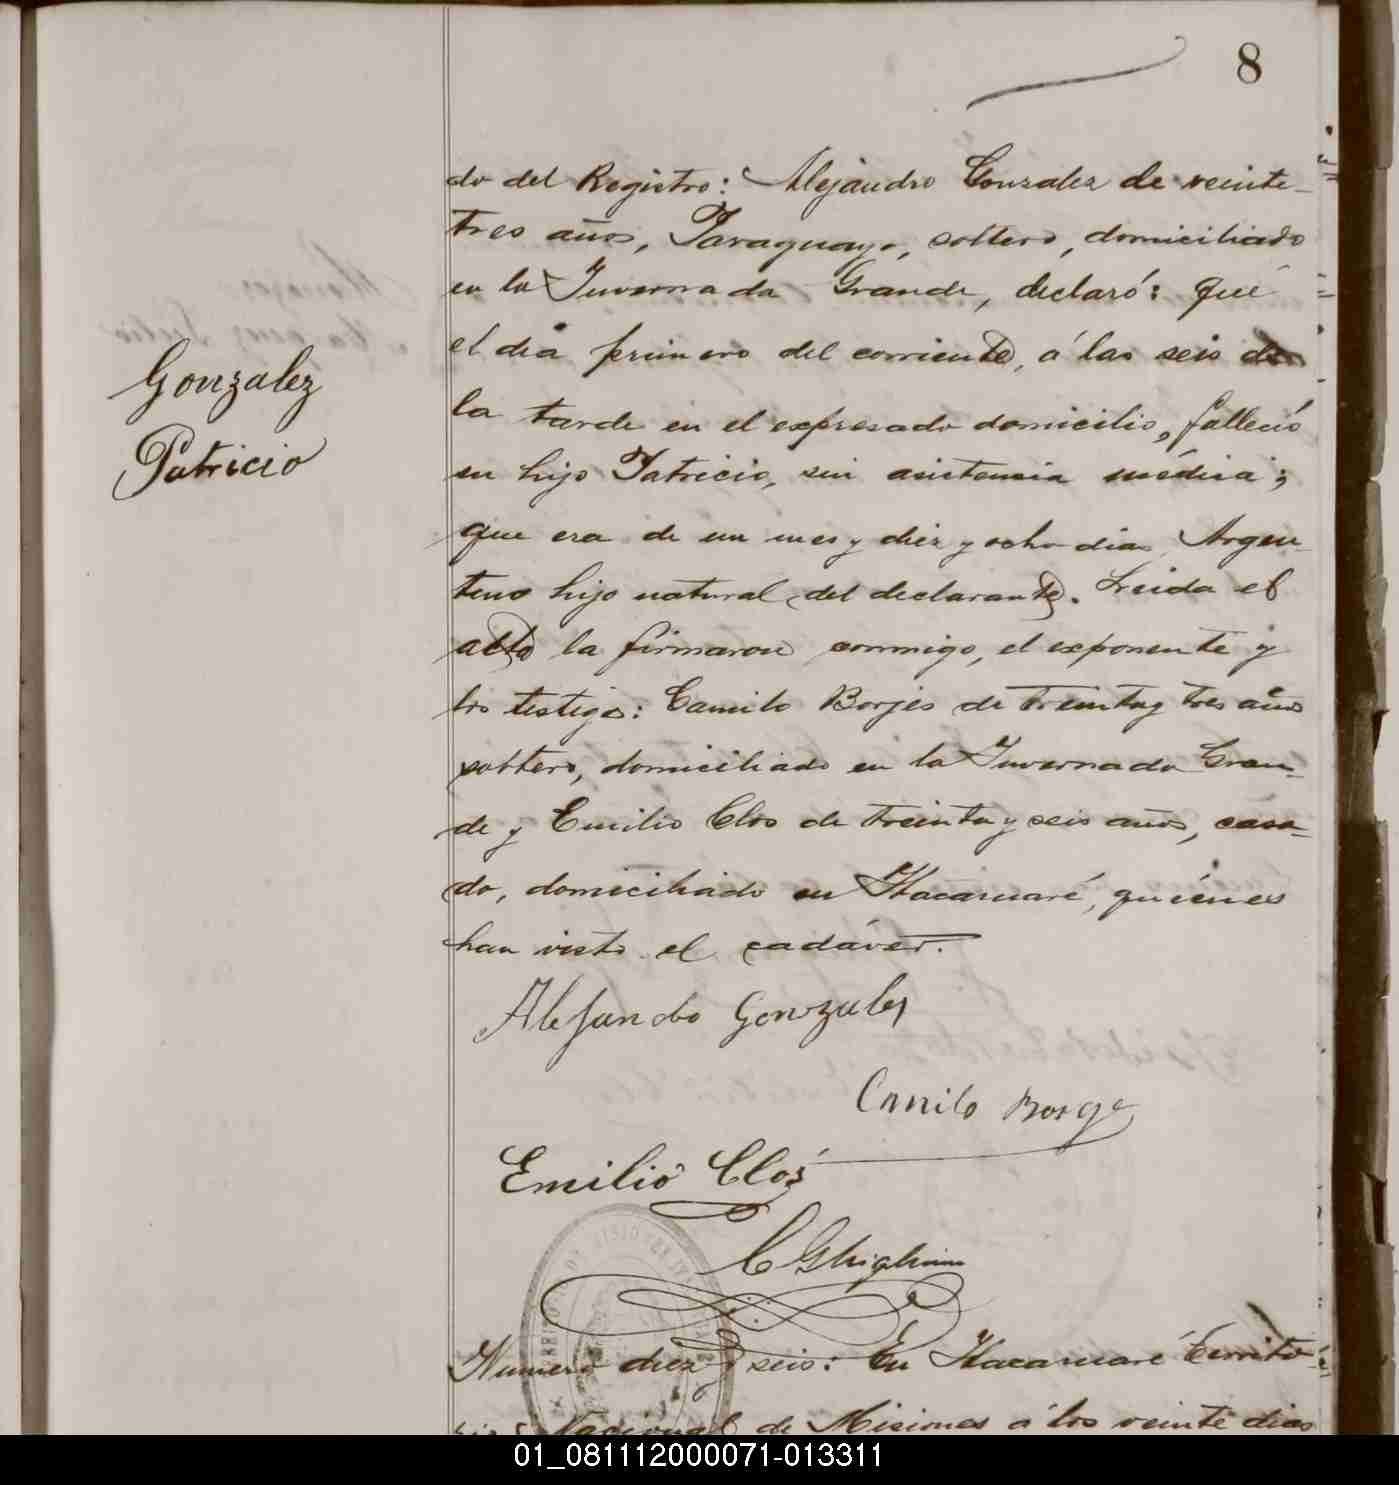 8
do del Registro: Alejandro Gonzalez de veinte
tres años, Paraguayo, soltero, domiciliado
en la Invernada Grande, declaró: que
el dia primero del corriente, á las seis de
la tarde en el expresado domicilio, falleció
su hijo Patricio, sin asistencia médica;
que era de un mes y diez y ocho dias Argen
tino hijo natural del declarante. Leida el
acta la firmaron conmigo, el exponente y
los testigos: Camilo Borjes de treinta y tres años
soltero, domiciliado en la Invernada Gran-
de y Emilio Clos de treinta y seis años, casa-
do, domiciliado en Itacaruaré, quiénes
han visto el cadáver.
Gonzalez
Patricio
Alejandro Gonzalez
Camilo Borge
Emilio Clos
C Ghiglione
Numero diez y seis: En Itacaruaré Territo-
rio Nacional de Misiones á los veinte dias
01_081112000071-013311